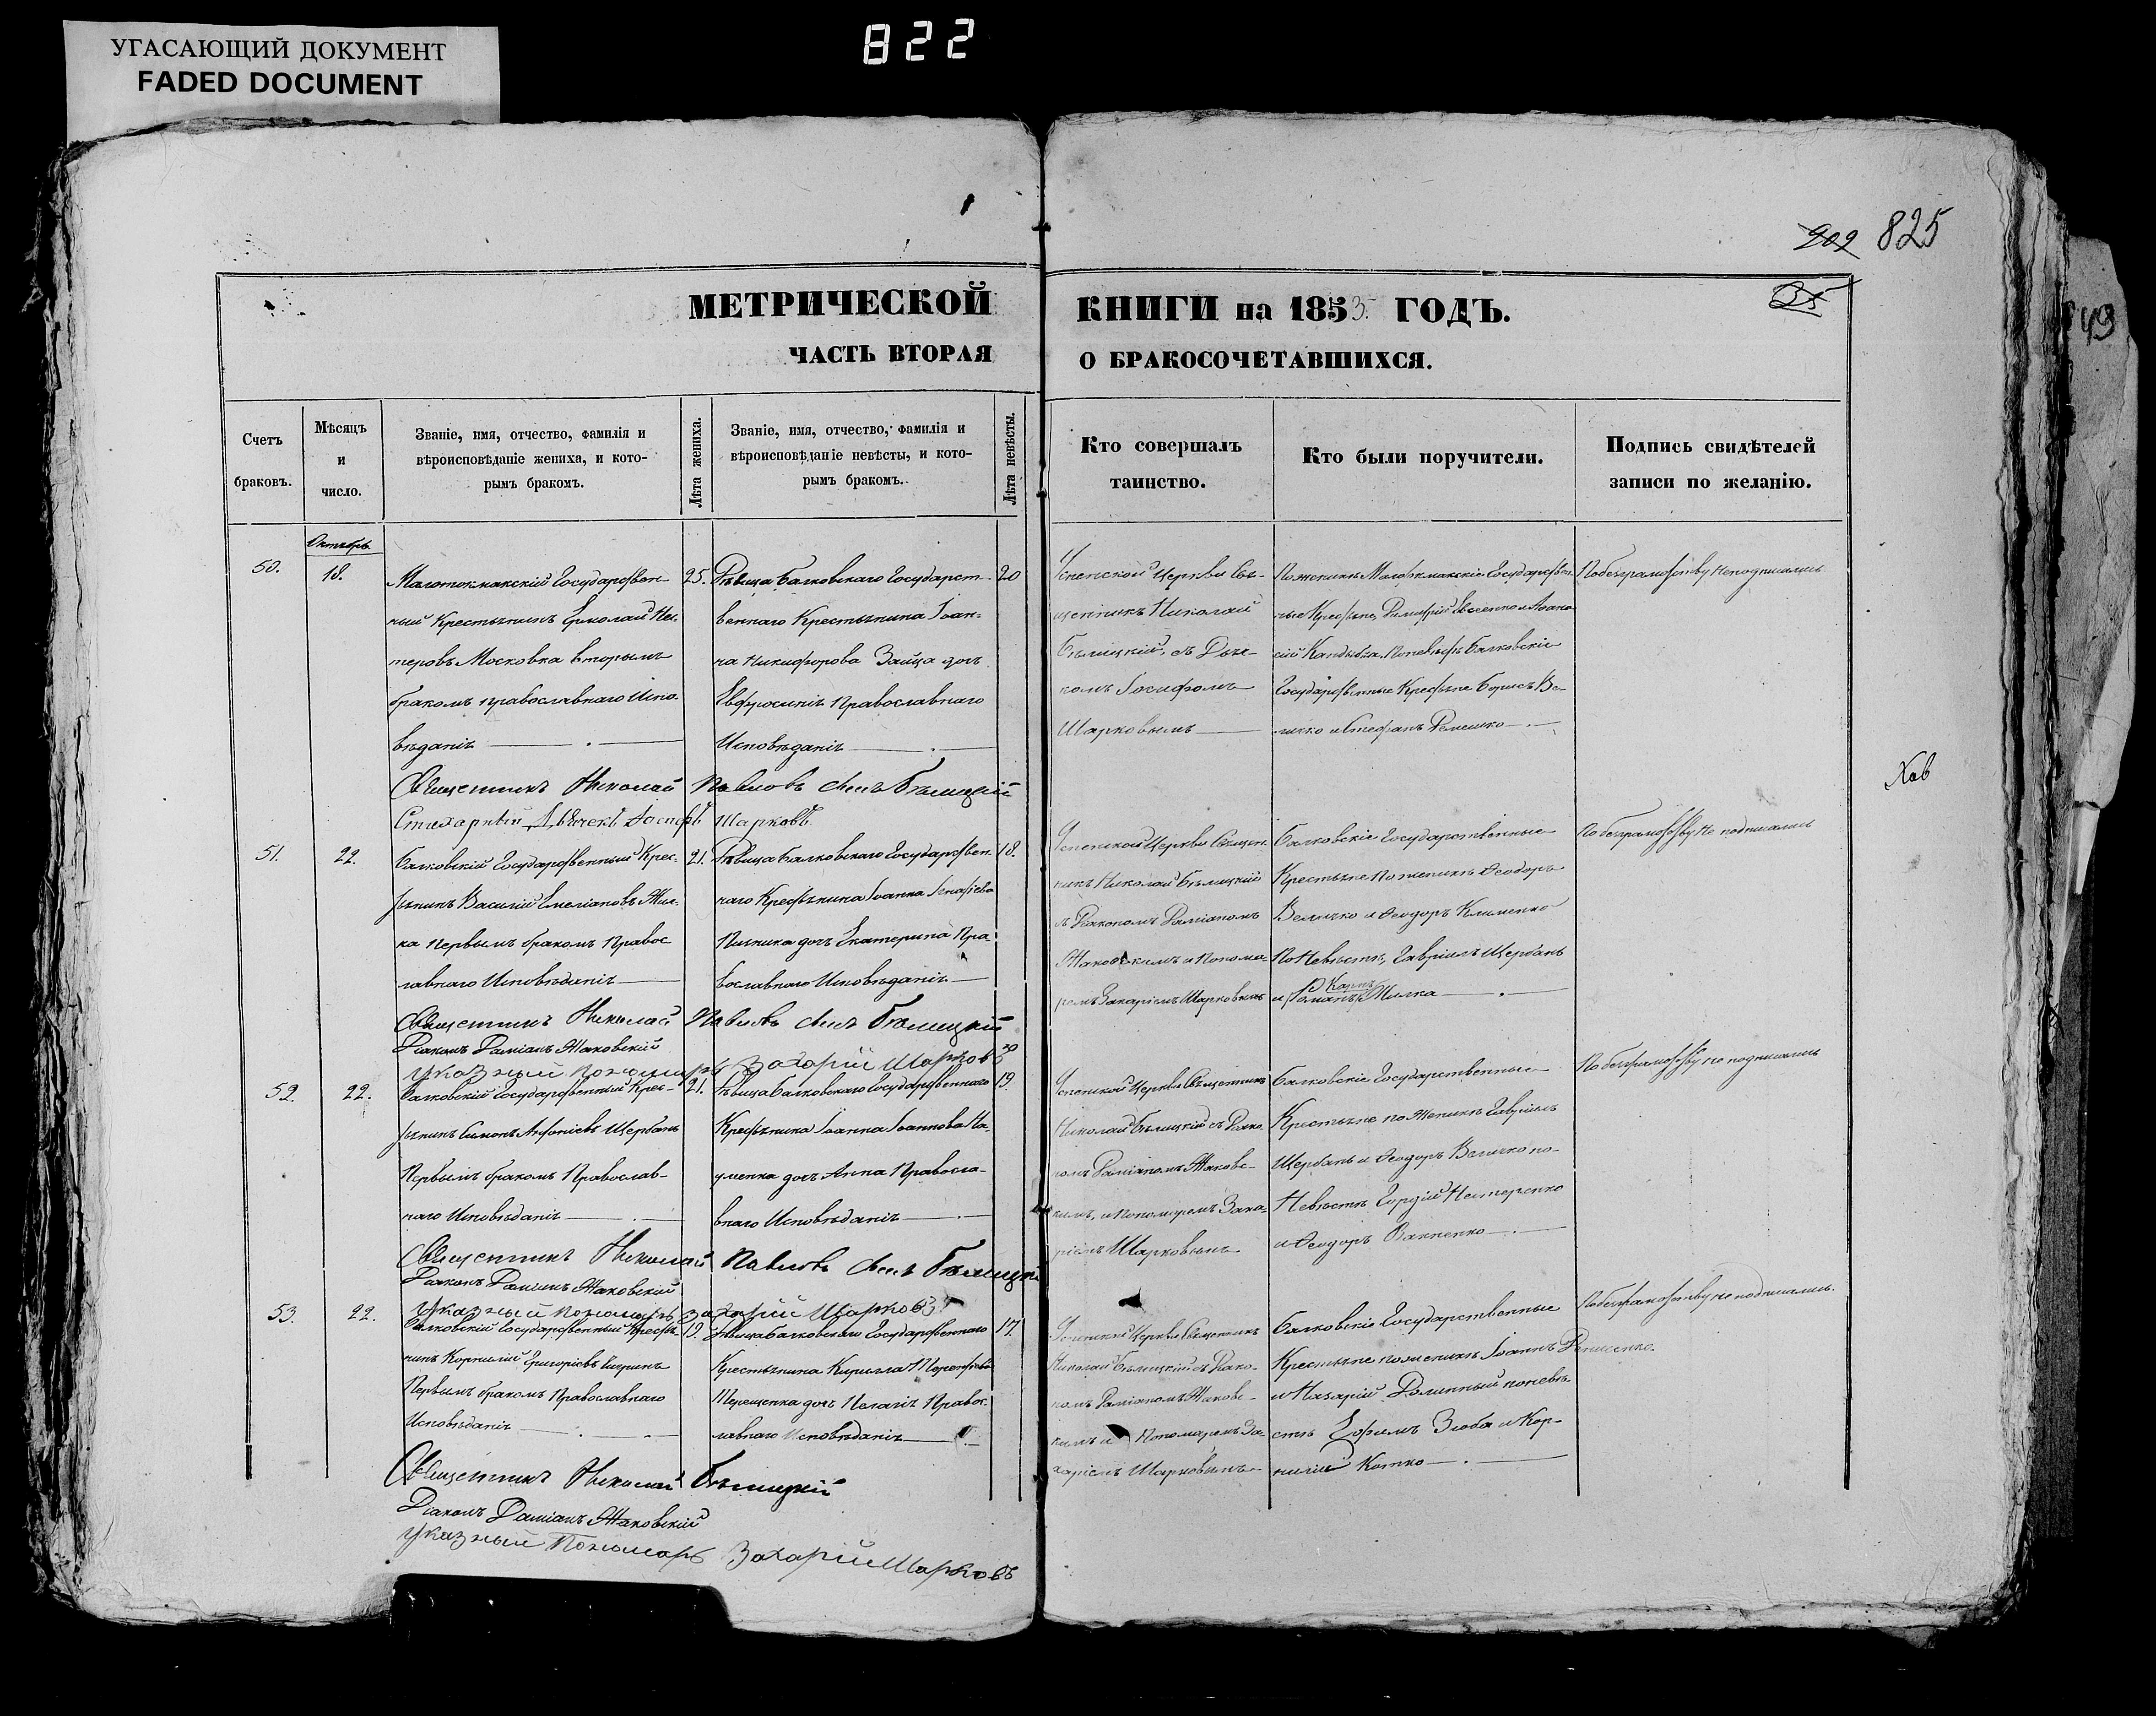 УГАСАЮЩИЙ ДОКУМЕНТ
FADED DOCUMENT
822
202 825
35
МЕТРИЧЕСКОЙ
ЧАСТЬ ВТОРАЯ
КНИГИ на 1853 ГОДЪ.
О БРАКОСОЧЕТАВШИХСЯ.
Счетъ
браковъ.
Мѣсяцъ
и
число.
Званіе, имя, отчество, фамилія и
вѣроисповѣданіе жениха, и кото-
рымъ бракомъ.
Лѣта жениха.
Званіе, имя, отчество, фамилія и
вѣроисповѣданіе невѣсты, и кото-
рымъ бракомъ.
Лѣта невѣсты.
Кто совершалъ
таинство.
Кто были поручители.
Подпись свидѣтелей
записи по желанію.
Октябрь
50.
18.
Малотокмакскій Государствен-
ный Крестьянинъ Ермолай Не-
теровъ Московка вторымъ
бракомъ православнаго Испо-
вѣданія
25.
Дѣвица Балковскаго Государст-
веннаго Крестьянина Іоан-
на Никифорова Зайца дочь
Евфросинія Православнаго
Исповѣданія
20
Успенской Церкви Свя-
щенникъ Николай
Бѣлицкій, съ Дьяч-
комъ Іосифомъ
Шарковымъ
По женихѣ Малотокмакскіе Государствен-
ные Крестьяне, Димитрій
Кандыбка. По невѣстѣ Балковскіе
Государственные Крестьяне Борисъ Ве-
личко и Стефанъ Ремешко
По безграмотству неподписались
Священникъ Николай Павловъ сынъ Бѣлицкій
Стихарный Дьячекъ Іосифъ Шарковъ
51.
22.
Балковскій Государственный Крес-
тьянинъ Василій Емеліановъ Жил-
ка первымъ бракомъ Правос-
лавнаго Исповѣданія
21.
Дѣвица Балковскаго Государствен-
наго Крестьянина Іоанна Игнатіева
Пичника дочь Екатерина Пра-
вославнаго Исповѣданія
18.
Успенской Церкви Священ-
никъ Николай Бѣлицкій
съ Діакономъ Даміаномъ
Жаковскимъ и Понома-
ремъ Захаріемъ Шарковымъ
Балковскіе Государственные
Крестьяне По женихѣ Ѳеодоръ
Величко и Ѳеодоръ Клименко
По Невѣстѣ, Гавріилъ Щербань
и Романъ Карпъ Жилка
По безграмотству Не подписались
Священникъ Николай Павловъ сынъ Бѣлицкій
Діаконъ Даміанъ Жаковскій
Указный пономарь Захарій Шарковъ
52.
22.
Балковскій Государственный Крес-
тьянинъ Симонъ Антоніевъ Щербань
Первымъ бракомъ Православ-
наго Исповѣданія
21.
Дѣвица Балковскаго Государственнаго
Крестьянина Іоанна Іоаннова На-
уменка дочь Анна Правосла-
внаго Исповѣданія
19.
Успенской Церкви Священникъ
Николай Бѣлицкій съ Діако-
номъ Даміаномъ Жаковс-
кимъ, и Пономаремъ Заха-
ріемъ Шарковымъ
Балковскіе Государственные
Крестьяне по Женихѣ Гавріилъ
Щербань и Ѳеодоръ Величко по-
Невѣстѣ Гордій Нестеренко
и Ѳеодоръ Ванненко
По безграмотству не подписались
Священникъ Николай Павловъ сынъ Бѣлицкій
Діаконъ Даміанъ Жаковскій
Указный пономарь Захарій Шарковъ
53.
22.
Балковскій Государственный Крестья-
нинъ Корнилій Григоріевъ
Первымъ бракомъ Православнаго
Исповѣданія
19.
Дѣвица Балковскаго Государственнаго
Крестьянина Кирилла Терентіева
Терещенка дочь Пелагія Правос-
лавнаго Исповѣданія
17.
Успенской Церкви Священникъ
Николай Бѣлицкій съ Діако-
номъ Даміаномъ Жаковс-
кимъ и Пономаремъ За-
харіемъ Шарковымъ
Балковскіе Государственные
Крестьяне по женихѣ Іоаннъ
и Назарій Долинный по невѣ-
стѣ Ефимъ Зюба и Кор-
нилій Котко
По безграмотству не подписались.
Священникъ Николай Бѣлицкій
Діаконъ Даміанъ Жаковскій
Указный Пономарь Захарій Шарковъ